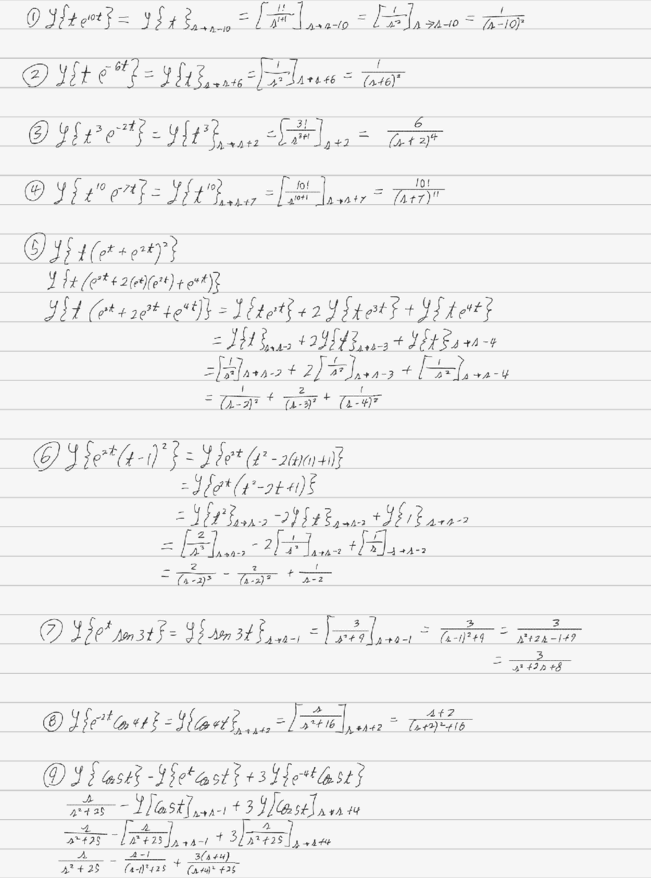 ① ℒ{t e^{10t}} = ℒ{t}_{s→s-10} = [1!/s^{1+1}]_{s→s-10} = [1/s²]_{s→s-10} = 1/(s-10)²
② ℒ{t e^{-6t}} = ℒ{t}_{s→s+6} = [1/s²]_{s→s+6} = 1/(s+6)²
③ ℒ{t³ e^{-2t}} = ℒ{t³}_{s→s+2} = [3!/s^{3+1}]_{s+2} = 6/(s+2)⁴
④ ℒ{t¹⁰ e^{-7t}} = ℒ{t¹⁰}_{s→s+7} = [10!/s^{10+1}]_{s→s+7} = 10!/(s+7)¹¹
⑤ ℒ{t(e^t + e^{2t})²}
ℒ{t(e^{2t} + 2(e^t)(e^{2t}) + e^{4t})}
ℒ{t(e^{2t} + 2e^{3t} + e^{4t})} = ℒ{te^{2t}} + 2ℒ{te^{3t}} + ℒ{te^{4t}}
= ℒ{t}_{s→s-2} + 2ℒ{t}_{s→s-3} + ℒ{t}_{s→s-4}
= [1/s²]_{s→s-2} + 2[1/s²]_{s→s-3} + [1/s²]_{s→s-4}
= 1/(s-2)² + 2/(s-3)² + 1/(s-4)²
⑥ ℒ{e^{2t}(t-1)²} = ℒ{e^{2t}(t² - 2(t)(1) + 1)}
= ℒ{e^{2t}(t² - 2t + 1)}
= ℒ{t²}_{s→s-2} - 2ℒ{t}_{s→s-2} + ℒ{1}_{s→s-2}
= [2/s³]_{s→s-2} - 2[1/s²]_{s→s-2} + [1/s]_{s→s-2}
= 2/(s-2)³ - 2/(s-2)² + 1/(s-2)
⑦ ℒ{e^t sen3t} = ℒ{sen3t}_{s→s-1} = [3/(s²+9)]_{s→s-1} = 3/((s-1)²+9) = 3/(s²+2s-1+9)
= 3/(s²+2s+8)
⑧ ℒ{e^{-2t} Cos4t} = ℒ{Cos4t}_{s→s+2} = [s/(s²+16)]_{s→s+2} = (s+2)/((s+2)²+16)
⑨ ℒ{Cos5t} - ℒ{e^t Cos5t} + 3ℒ{e^{-4t} Cos5t}
s/(s²+25) - ℒ[Cos5t]_{s→s-1} + 3ℒ[Cos5t]_{s→s+4}
s/(s²+25) - [s/(s²+25)]_{s→s-1} + 3[s/(s²+25)]_{s→s+4}
s/(s²+25) - (s-1)/((s-1)²+25) + 3(s+4)/((s+4)²+25)